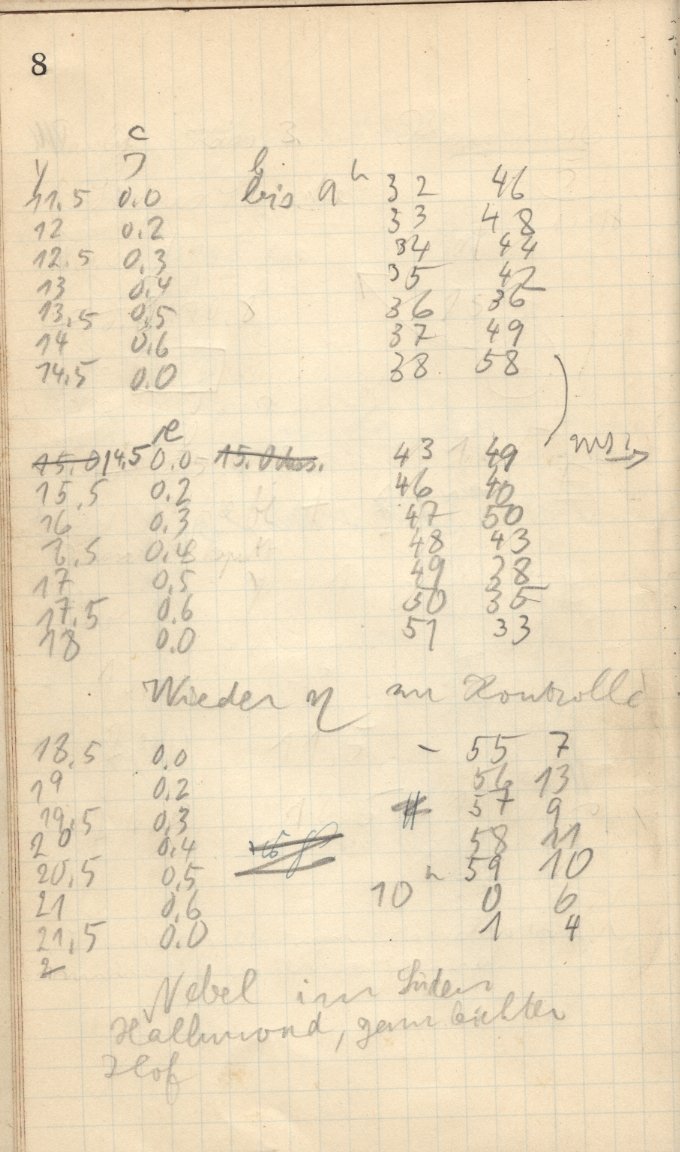 8
c
11.5 0.0 bis 9h 32 46
12 0.2 33 48
12.5 0.3 34 44
13 0.4 35 42
13.5 0.5 36 36
14 0.6 37 49
14.5 0.0 38 58
e
15.0 14.5 0.0 15.0 43 49
15.5 0.2 46 40
16 0.3 47 50
16.5 0.4 48 43
17 0.5 49 38
17.5 0.6 50 35
18 0.0 51 33
Wieder η zur Kontrolle
18.5 0.0 – 55 7
19 0.2 56 13
19.5 0.3 57 9
20 0.4 58 11
20.5 0.5 59 10
21 0.6 10h 0 6
21.5 0.0 1 4
2
Nebel im Süden
Halbmond, ganz leichter
Hof